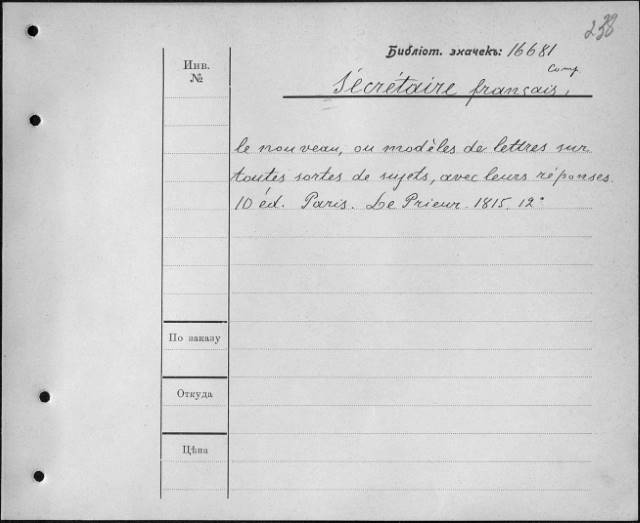 238
Библіот. значекъ: 16681
Comp.
Инв.
№
Sécrétaire français,
le nouveau, ou modèles de lettres sur
toutes sortes de sujets, avec leurs réponses.
10 éd. Paris. Le Prieur. 1815. 12°
По заказу
Откуда
Цѣна